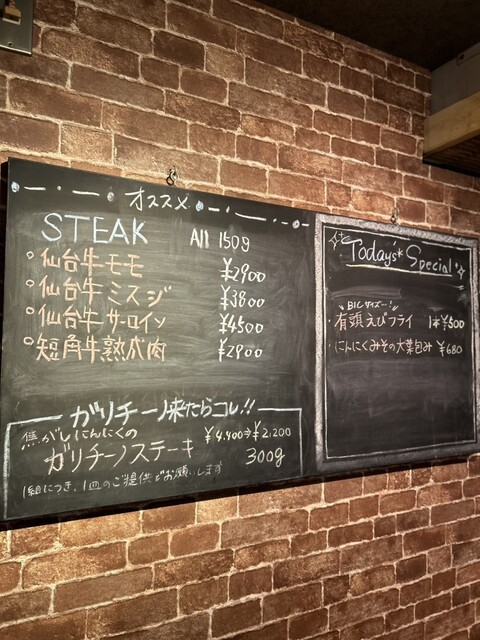 オススメ
STEAK All 150g
仙台牛モモ ¥2900
仙台牛ミスジ ¥3800
仙台牛サーロイン ¥4500
短角牛熟成肉 ¥2900
ガリチーノ来たらコレ!!
焦がしにんにくの
ガリチーノステーキ ¥4,400⇒¥2,200
300g
1組につき、1皿のご提供でお願いします
Today's Special
BIGサイズ!
有頭えびフライ 1本¥500
にんにくみその大葉包み ¥680